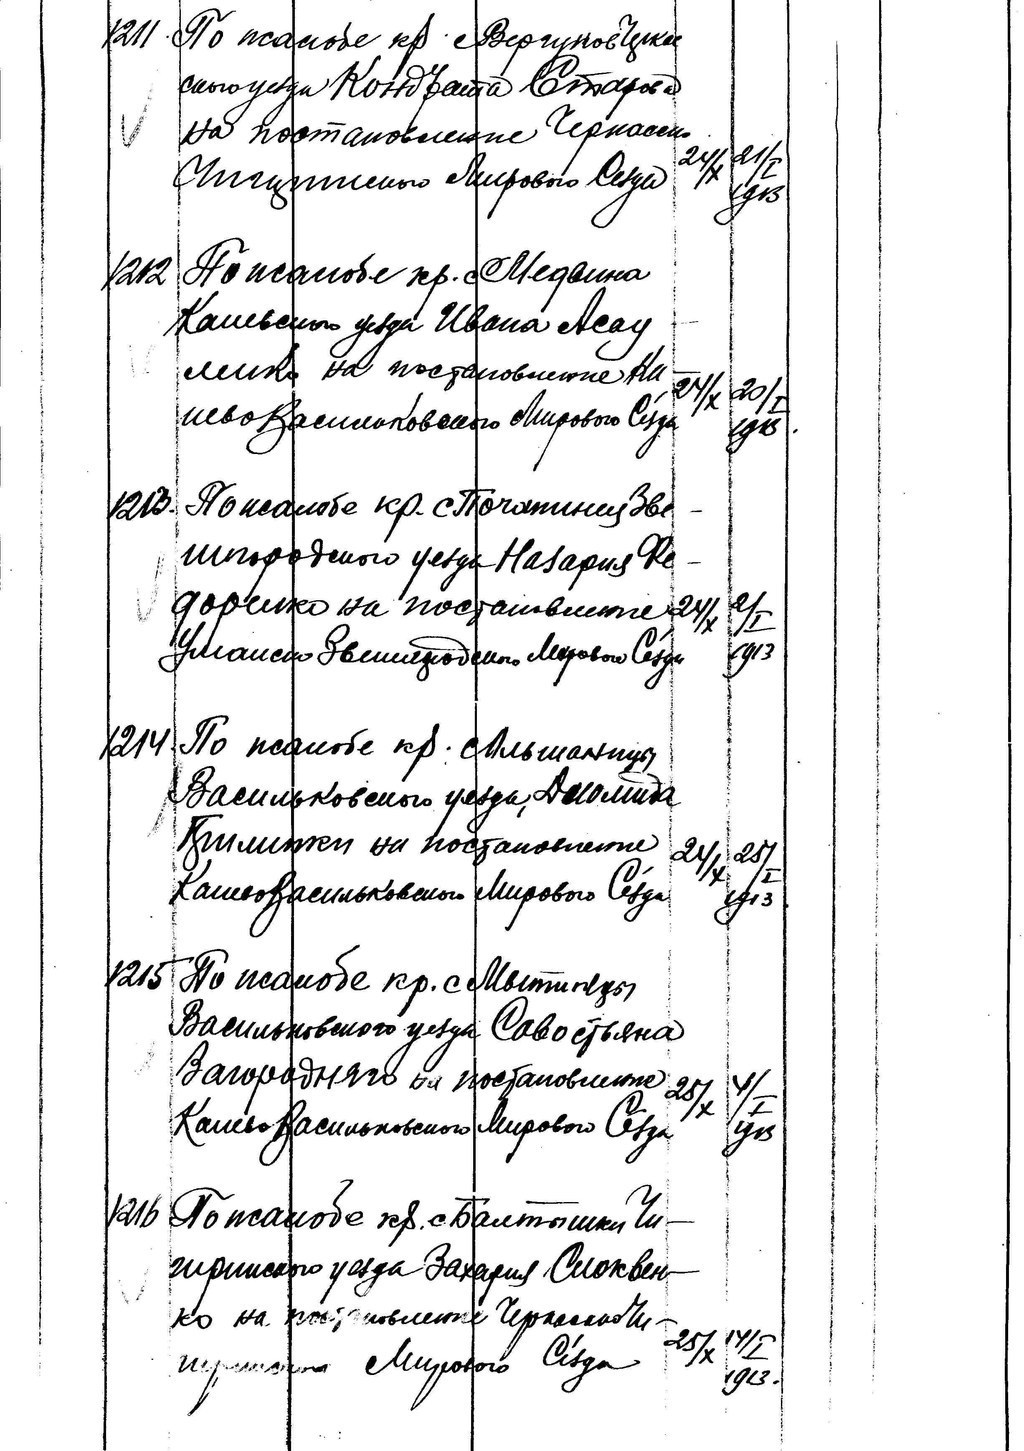 1211. По жалобе кр. с Вергунов Черкас
ского уезда Кондрата Старова
на постановление Черкасско
Чигиринского Мирового Сезда 24/X 21/I 1913
1212 По жалобе кр. с Медвина
Каневского уезда Ивана Асау
ленко на постановление Ка-
нево Васильковского Мирового Сезда 24/X 20/I 1913.
1213. По жалобе кр. с Почапинец Зве-
нигородского уезда Назария Фе-
доренко на постановление 24/X 2/I 1913
Уманско Звенигородского Мирового Сезда
1214. По жалобе кр. с Ольшаницы
Васильковского уезда,
на постановление 24/X 25/I 1913
Канево Васильковского Мирового Сезда
1215 По жалобе кр. с Мытницы
Васильковского уезда Савостьяна
Загородняго на постановление 25/X 4/I 1913
Канево Васильковского Мирового Сезда
1216 По жалобе кр. с Балтышки Чи-
гиринского уезда Захария Смоквен-
ко на постановление Черкасско Чи-
гиринского Мирового Сезда 25/X 14/I 1913.